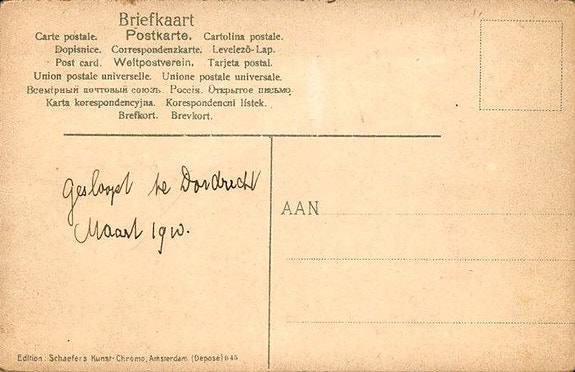 Briefkaart
Carte postale. Postkarte. Cartolina postale.
Dopisnice. Correspondenzkarte. Levelező-Lap.
Post card. Weltpostverein. Tarjeta postal.
Union postale universelle. Unione postale universale.
Всемірный почтовый союзъ. Россія. Открытое письмо.
Karta korespondencyjna. Korespondencni lístek.
Brefkort. Brevkort.
Gesloopt te Dordrecht
Maart 1910.
AAN
Edition: Schaefers Kunst-Chromo, Amsterdam (Deposé) 645